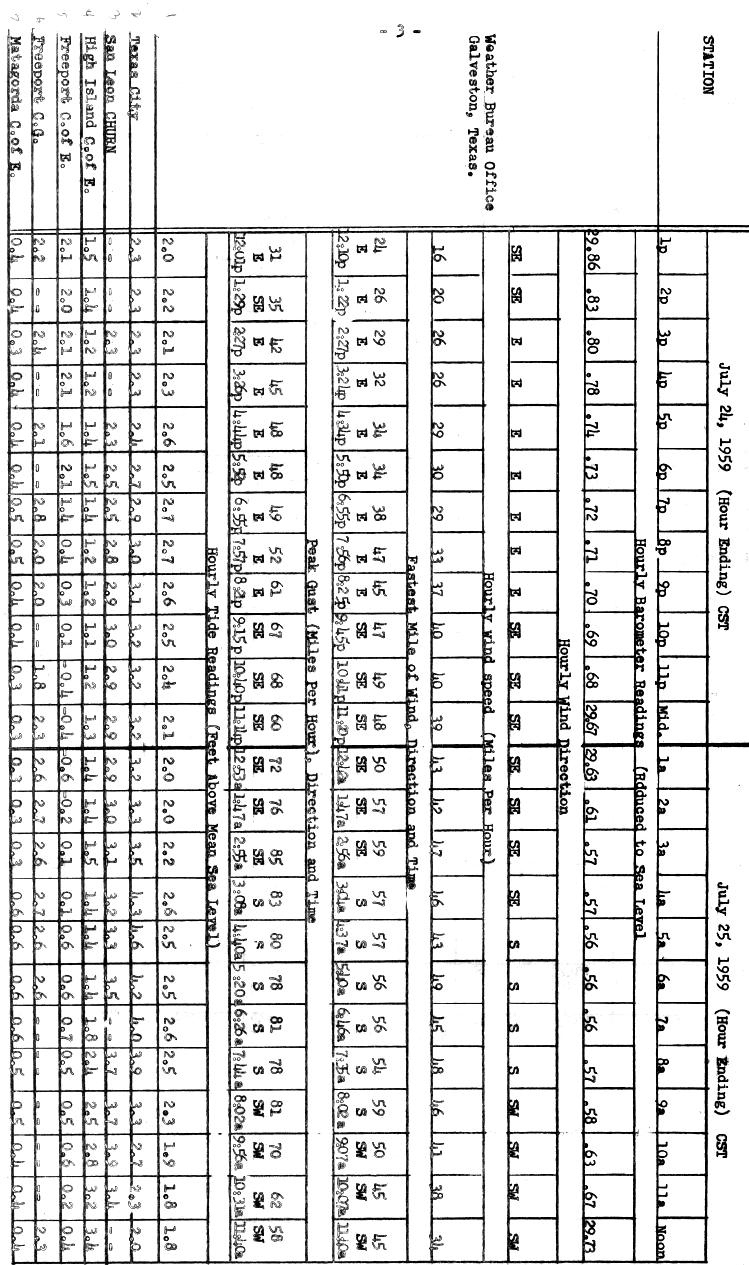 July 24, 1959 (Hour Ending) CST July 25, 1959 (Hour Ending) CST
STATION 1p 2p 3p 4p 5p 6p 7p 8p 9p 10p 11p Mid. 1a 2a 3a 4a 5a 6a 7a 8a 9a 10a 11a Noon
Hourly Barometer Readings (Rdduced to Sea Level
29.86 .83 .80 .78 .74 .73 .72 .71 .70 .69 .68 29.67 29.63 .61 .57 .57 .56 .56 .56 .57 .58 .63 .67 29.73
Hourly Wind Direction
SE SE E E E E E E E SE SE SE SE SE SE SE S S S S SW SW SW SW
Weather Bureau Office
Galveston, Texas.
Hourly Wind speed (Miles Per Hour)
16 20 26 26 29 30 29 33 37 40 40 39 43 42 47 46 43 49 45 48 46 41 38 34
Fastest Mile of Wind, Direction and Time
24 26 29 32 34 34 38 47 45 47 49 48 50 57 59 57 57 56 56 54 59 50 45 45
E E E E E E E E E SE SE SE SE SE SE S S S S S SW SW SW SW
12:10p 1:22p 2:27p 3:24p 4:34p 5:50p 6:55p 7:56p 8:25p 9:45p 10:41p 1:47a 2:56a 3:01a 4:37a 6:46a 7:35a 8:02a 9:07a 10:07a
Peak Gust (Miles Per Hour), Direction and Time
31 35 42 45 48 48 49 52 61 67 68 60 72 76 85 83 80 78 81 78 81 70 62 58
E SE E E E E E E E SE SE SE SE SE SE S S S S S SW SW SW SW
12:01p 1:29p 2:27p 3:26p 4:44p 6:55p 7:57p 9:15p 10:40p 11:14p 12:53a 1:47a 2:55a 3:08a 4:40a 5:20a 6:26a 7:44a 8:02a 9:56a 10:31a
Hourly Tide Readings (Feet Above Mean Sea Level)
1 2.0 2.2 2.1 2.3 2.6 2.5 2.7 2.7 2.6 2.5 2.4 2.1 2.0 2.0 2.2 2.6 2.5 2.5 2.6 2.5 2.3 1.9 1.8 1.8
2 Texas City 2.3 2.3 2.3 2.3 2.4 2.7 2.9 3.0 3.1 3.2 3.2 3.2 3.2 3.3 3.5 4.3 4.6 4.2 4.0 3.9 3.3 2.7 2.3 2.0
3 San Leon CHURN -- -- 2.3 -- 2.3 2.5 2.5 2.8 2.9 3.0 2.9 2.9 2.9 3.0 3.1 3.2 3.3 3.5 -- 3.7 3.7 3.9 3.4 --
4 High Island C.of E. 1.5 1.4 1.2 1.2 1.4 1.5 1.4 1.2 1.2 1.1 1.2 1.3 1.4 1.4 1.5 1.4 1.4 1.4 1.8 2.4 2.5 2.8 3.2 3.4
5 Freeport C.of E. 2.1 2.0 2.1 2.1 1.6 2.1 1.4 0.4 0.3 0.1 -0.4 -0.4 -0.6 -0.2 0.1 0.1 0.6 0.6 0.7 0.5 0.5 0.6 0.2 0.4
6 Freeport C.G. 2.2 -- 2.4 -- 2.1 -- 2.8 2.0 2.0 -- 1.8 2.3 2.6 2.7 2.6 2.7 2.6 2.6 -- -- -- -- -- 2.3
7 Matagorda C.of E. 0.4 0.4 0.3 0.4 0.4 0.4 0.5 0.5 0.4 0.4 0.3 0.3 0.3 0.3 0.3 0.6 0.6 0.6 0.6 0.5 0.5 0.4 0.4 0.4
- 3 -